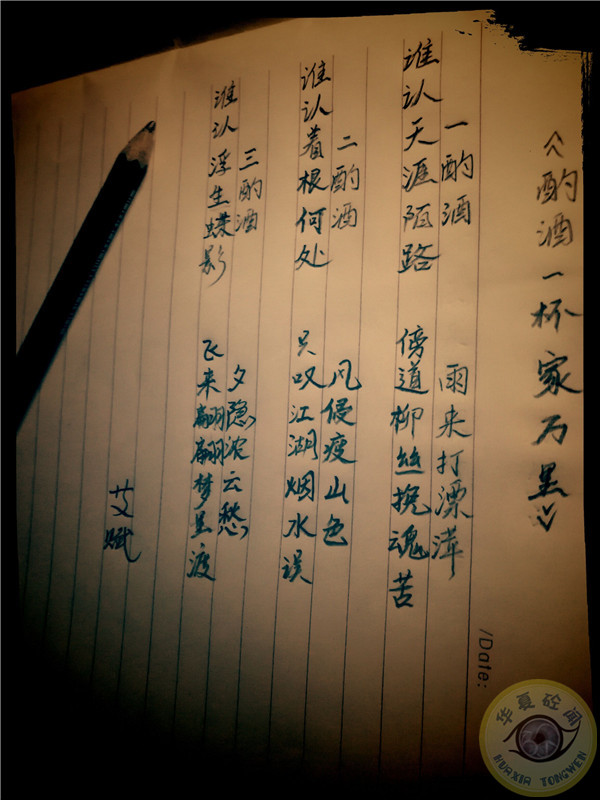 《酌酒一杯家万里》
一酌酒 雨来打漂萍
谁认天涯陌路 傍道柳丝挽魂苦
二酌酒 风侵瘦山色
谁认着根何处 只叹江湖烟水误
三酌酒 夕隐浓云愁
谁认浮生蝶影 飞来翩翩梦里渡
艾赋
/Date:
华夏砼闻
HUAXIA TONGWEN